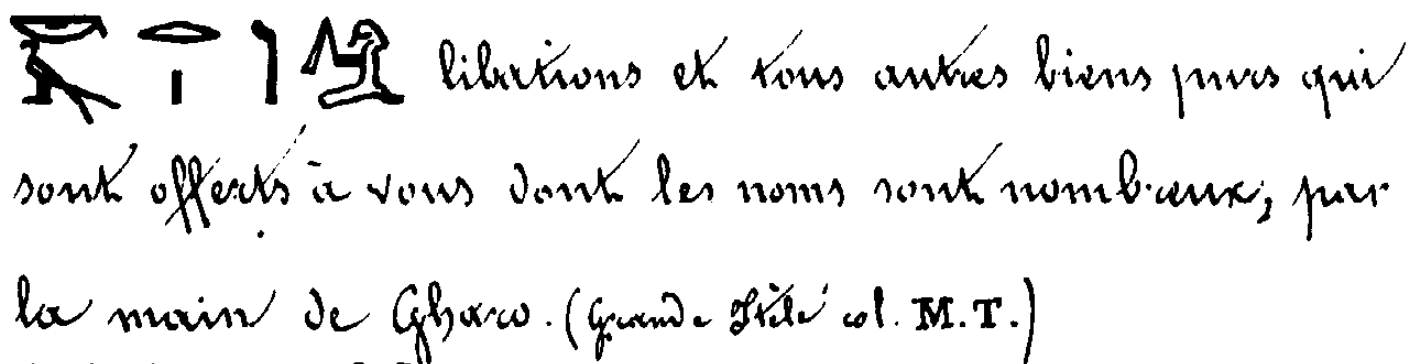 libations et tous autres biens purs qui
sont offerts à vous dont les noms sont nombreux, par
la main de Gharo. (Grande Stèle col. M. T.)